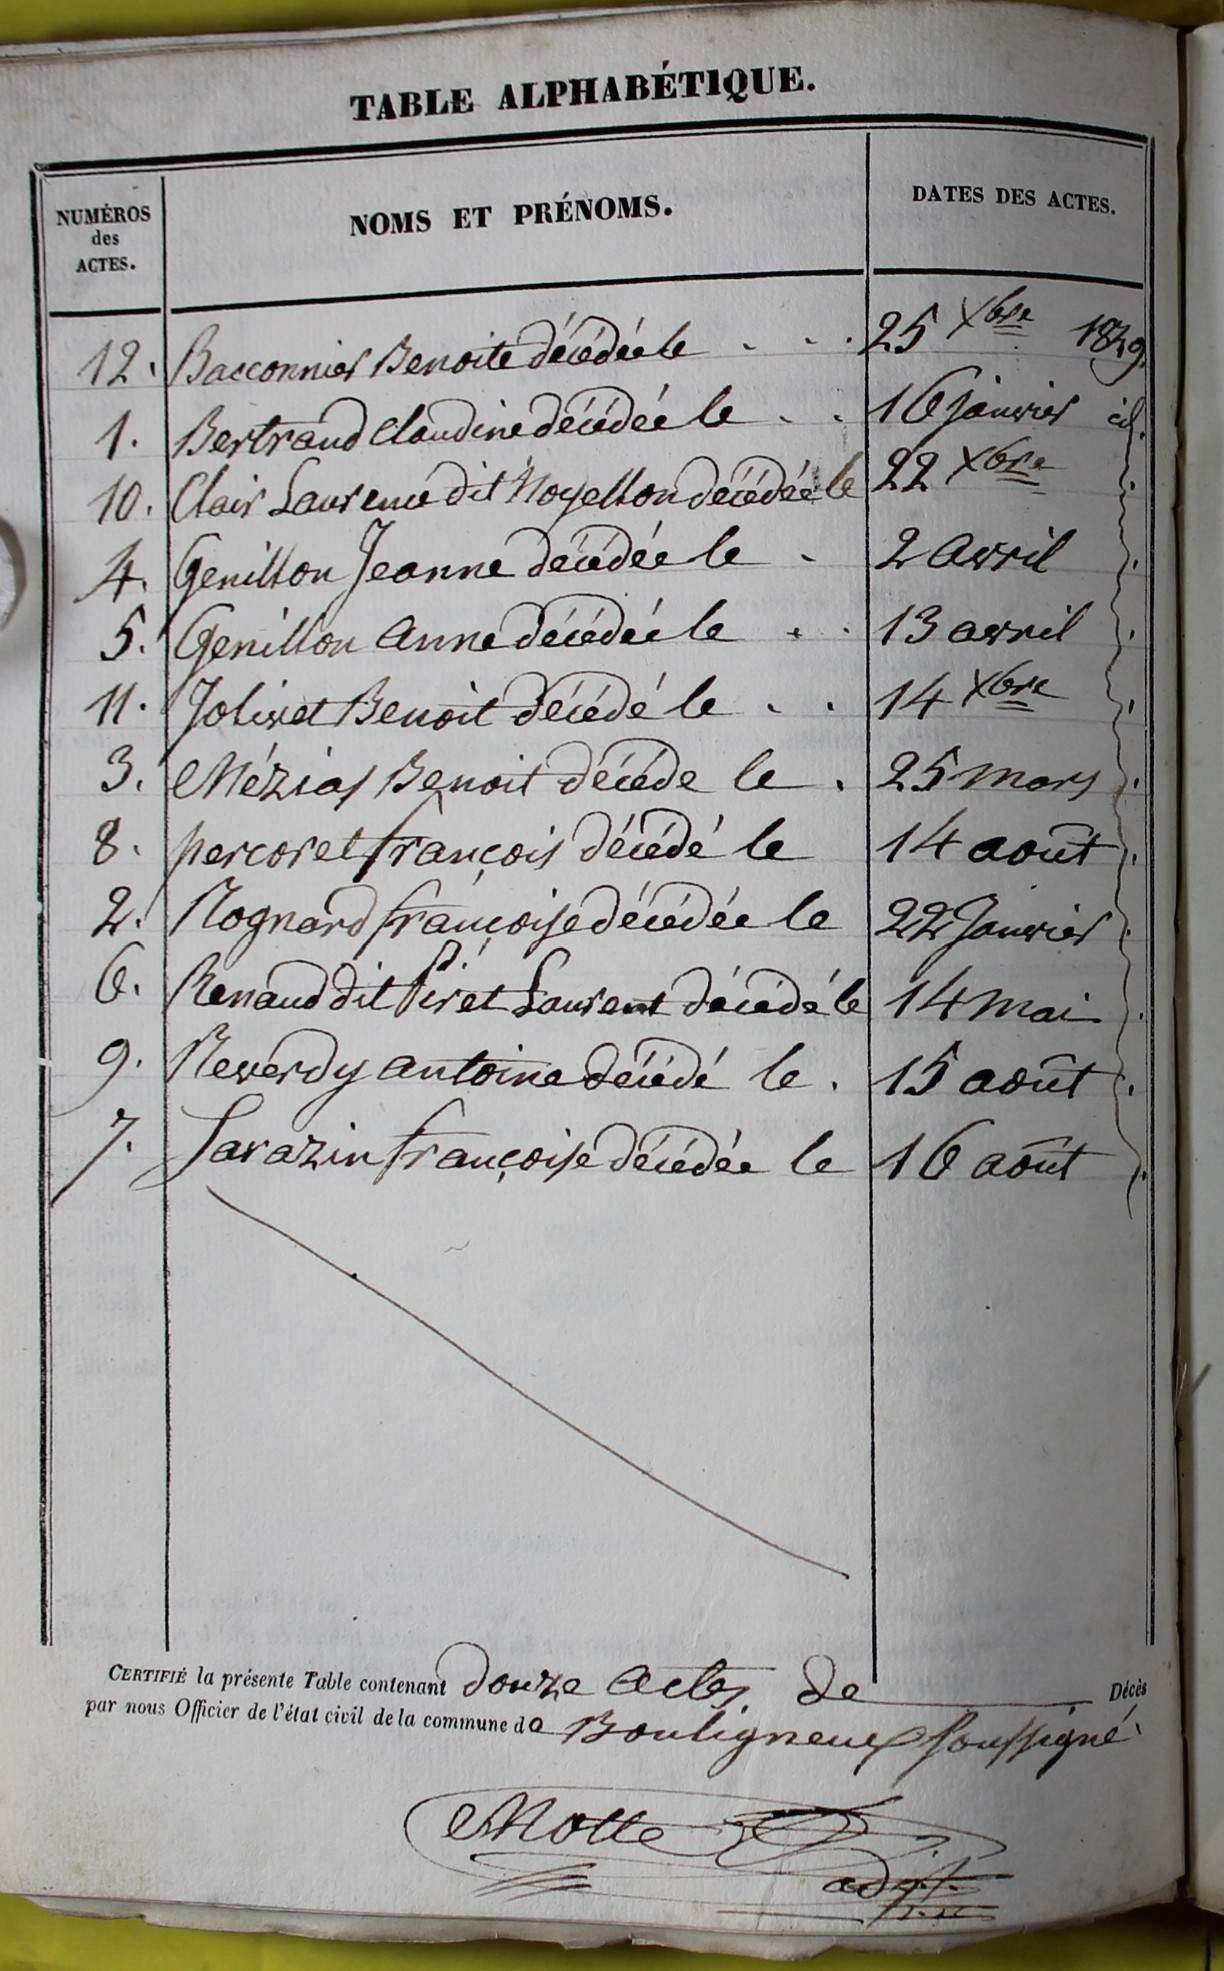 TABLE ALPHABÉTIQUE.
NUMÉROS des ACTES.
NOMS ET PRÉNOMS.
DATES DES ACTES.
12. Bacconnier Benoite décédée le . . . 25 Xbre 1849
1. Bertrand Claudine décédée le . . 16 janvier id.
10. Clair Laurence dit Noyelton décédée le 22 Xbre
4. Genillon Jeanne décédée le . 2 avril
5. Genillon Anne décédée le . . 13 avril
11. Jolivet Benoit décédé le . . 14 Xbre
3. Mézias Benoit décéde le . 25 mars
8. percoret françois décédé le 14 août
2. Rognard françoise décédée le 22 Janvier
6. Renaud dit Piret Laurent décédé le 14 mai
9. Reverdy antoine décédé le . 15 août
7. Sarazin françoise décédée le 16 août
CERTIFIÉ la présente Table contenant douze actes de Décès
par nous Officier de l'état civil de la commune de Bouligneux soussigné
Motte
adjt.